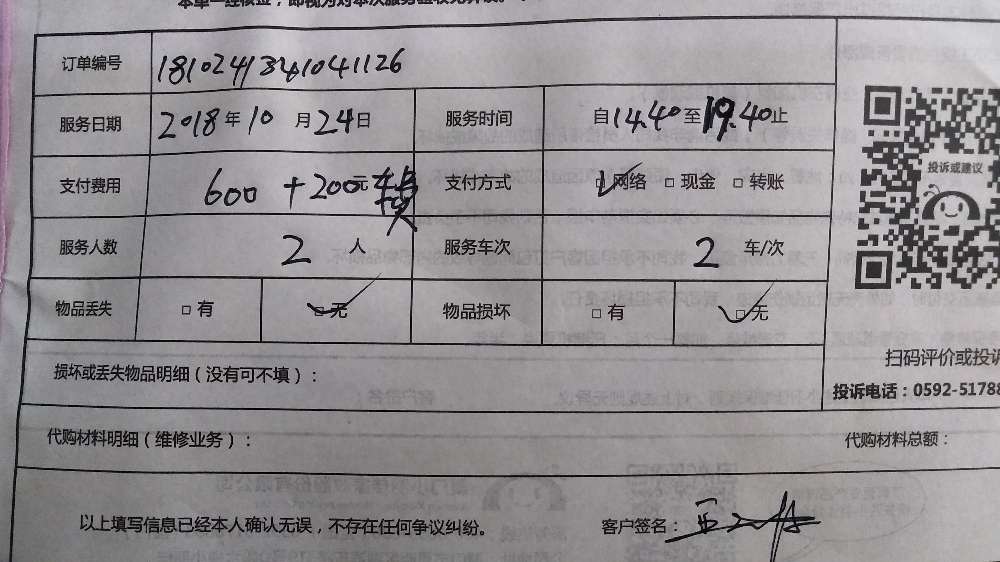 本单一经核签，即视为对本次服务验收无异议。
订单编号 181024134041126
服务日期 2018年10月24日 服务时间 自14.40至19.40止
支付费用 600+200元 支付方式 网络 □现金 □转账
服务人数 2人 服务车次 2车/次
物品丢失 □有 □无 物品损坏 □有 □无
投诉或建议
损坏或丢失物品明细（没有可不填）：
扫码评价或投诉
投诉电话：0592-51788
代购材料明细（维修业务）： 代购材料总额：
以上填写信息已经本人确认无误，不存在任何争议纠纷。 客户签名：